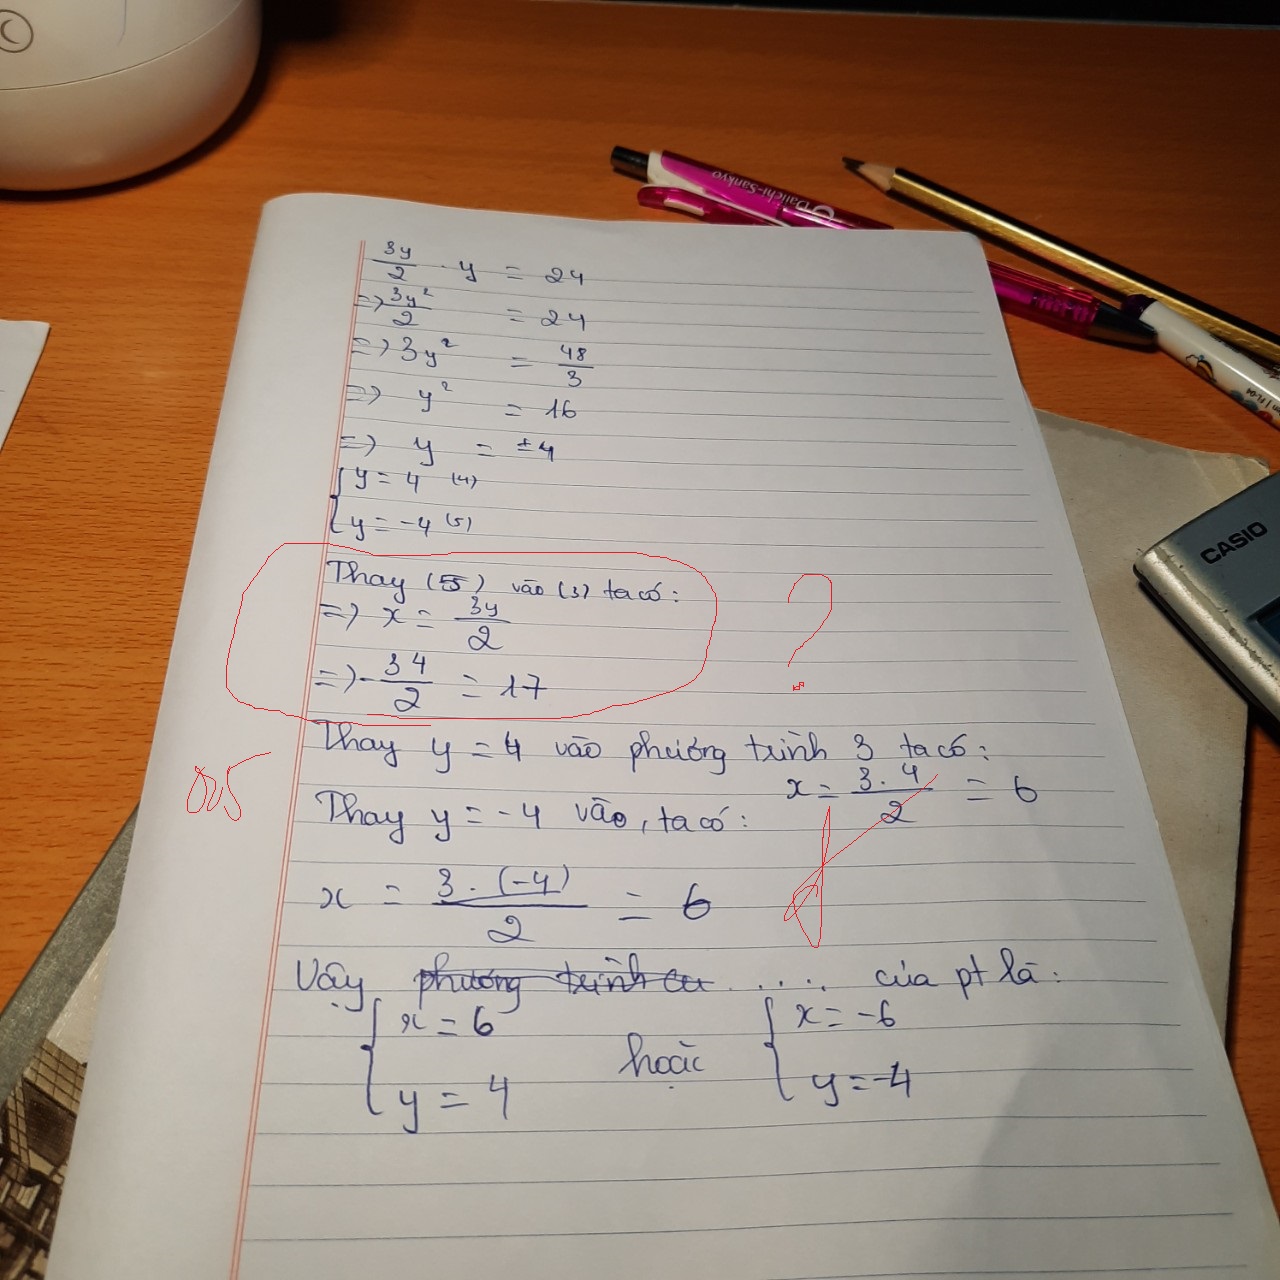 Daiichi-Sankyo
CASIO
3y/2 . y = 24
=> 3y²/2 = 24
=> 3y² = 48/3
=> y² = 16
=> y = ±4
{ y = 4 (4)
y = -4 (5)
Thay (5) vào (3) ta có:
=> x = 3y/2
=> - 34/2 = 17
?
Thay y = 4 vào phương trình 3 ta có:
x = 3.4/2 = 6
Thay y = -4 vào, ta có:
x = 3.(-4)/2 = 6
Vậy phương trình ..... của pt là:
{ x = 6 hoặc { x = -6
y = 4 y = -4